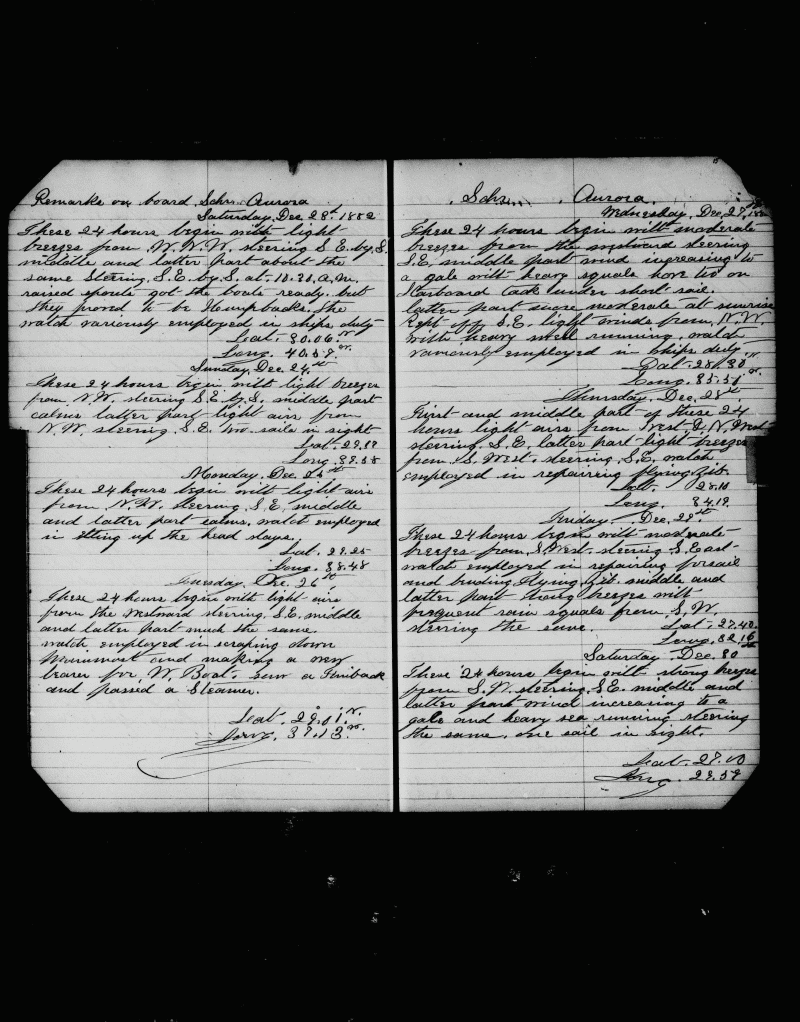 Remarks on board Schr. Aurora
Saturday Dec 23d 1882
These 24 hours begin with light
breezes from W.N.W. steering S E. by. S.
middle and latter part about the
same Steering. S.E. by S. at. 10.30. a.m.
raised spouts got the boats ready. but
they proved to be Humpbacks. the
watch variously employed in ships duty
Lat. 30.06. N.
Long. 40.59. W.
Sunday, Dec. 24th
These 24 hours begin with light breezes
from N.W. steering S.E. by S. middle part
calms latter part light airs from
N.W. steering. S.E. two sails in sight
Lat. 29.
Long. 39.38
Monday. Dec. 25th
These 24 hours begin with light airs
from N.W. steering S.E. middle
and latter part calms, watch employed
in setting up the head stays.
Lat. 29.25
Long. 38.48
Tuesday. Dec. 26th
These 24 hours begin with light airs
from the Westward steering. S.E. middle
and latter part much the same.
watch employed in scraping down
and making a new
bearer for W. Boat. saw a Finback
and passed a Steamer.
Lat. 29.01. N.
Long. 37.13. W.
Schr. Aurora.
Wednesday, Dec. 27th
These 24 hours begin with moderate
breezes from the westward steering
S.E. middle part wind increasing to
a gale with heavy squals hove too on
Starboard tack under short sail.
latter part more moderate at sunrise
Kept off S.E. light winds from. N.W.
with heavy swell running. watch
variously employed in ships duty
Lat. 28.30 N.
Long. 35.51 W.
Thursday. Dec. 28th
First and middle part of these 24
hours light airs from West & N. West
steering. S.E. latter part light breezes
from S. West. steering. S.E. watch
employed in repairing flying Jib.
Lat. 28.18
Long. 34.19.
Friday. Dec. 29th
These 24 hours begin with moderate
breezes from S West. steering S. East
watch employed in repairing foresail
and bending Flying Jib. middle and
latter part breezes with
frequent rain squals from S.W.
steering the same. Lat. 27.40.
Long. 32.16
Saturday. Dec. 30th
These 24 hours begin with strong breezes
from S.W. steering. S.E. middle and
latter part wind increasing to a
gale and heavy sea running steering
the same. one sail in sight.
Lat. 27.00
Long. 29.59